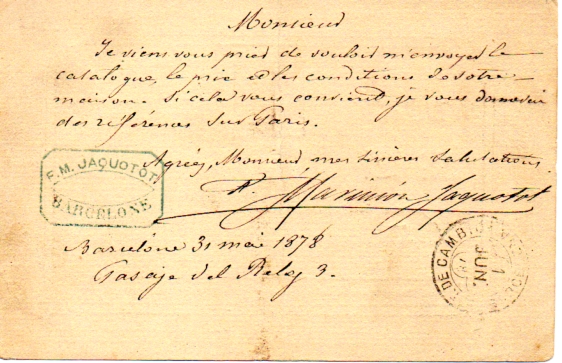 Monsieur
Je viens vous prier de vouloir m'envoyer le
catalogue, le prix et les conditions de votre
maison. Si cela vous convient, je vous donnerai
des références sur Paris.
Agréez, Monsieur mes sincères salutations.
F. M. JAQUOTOT
BARCELONE
Maximion Jaquotot
Barcelone 31 mai 1878
Pasaje del Reloj 3.
DE CAMBI
1
JUN.